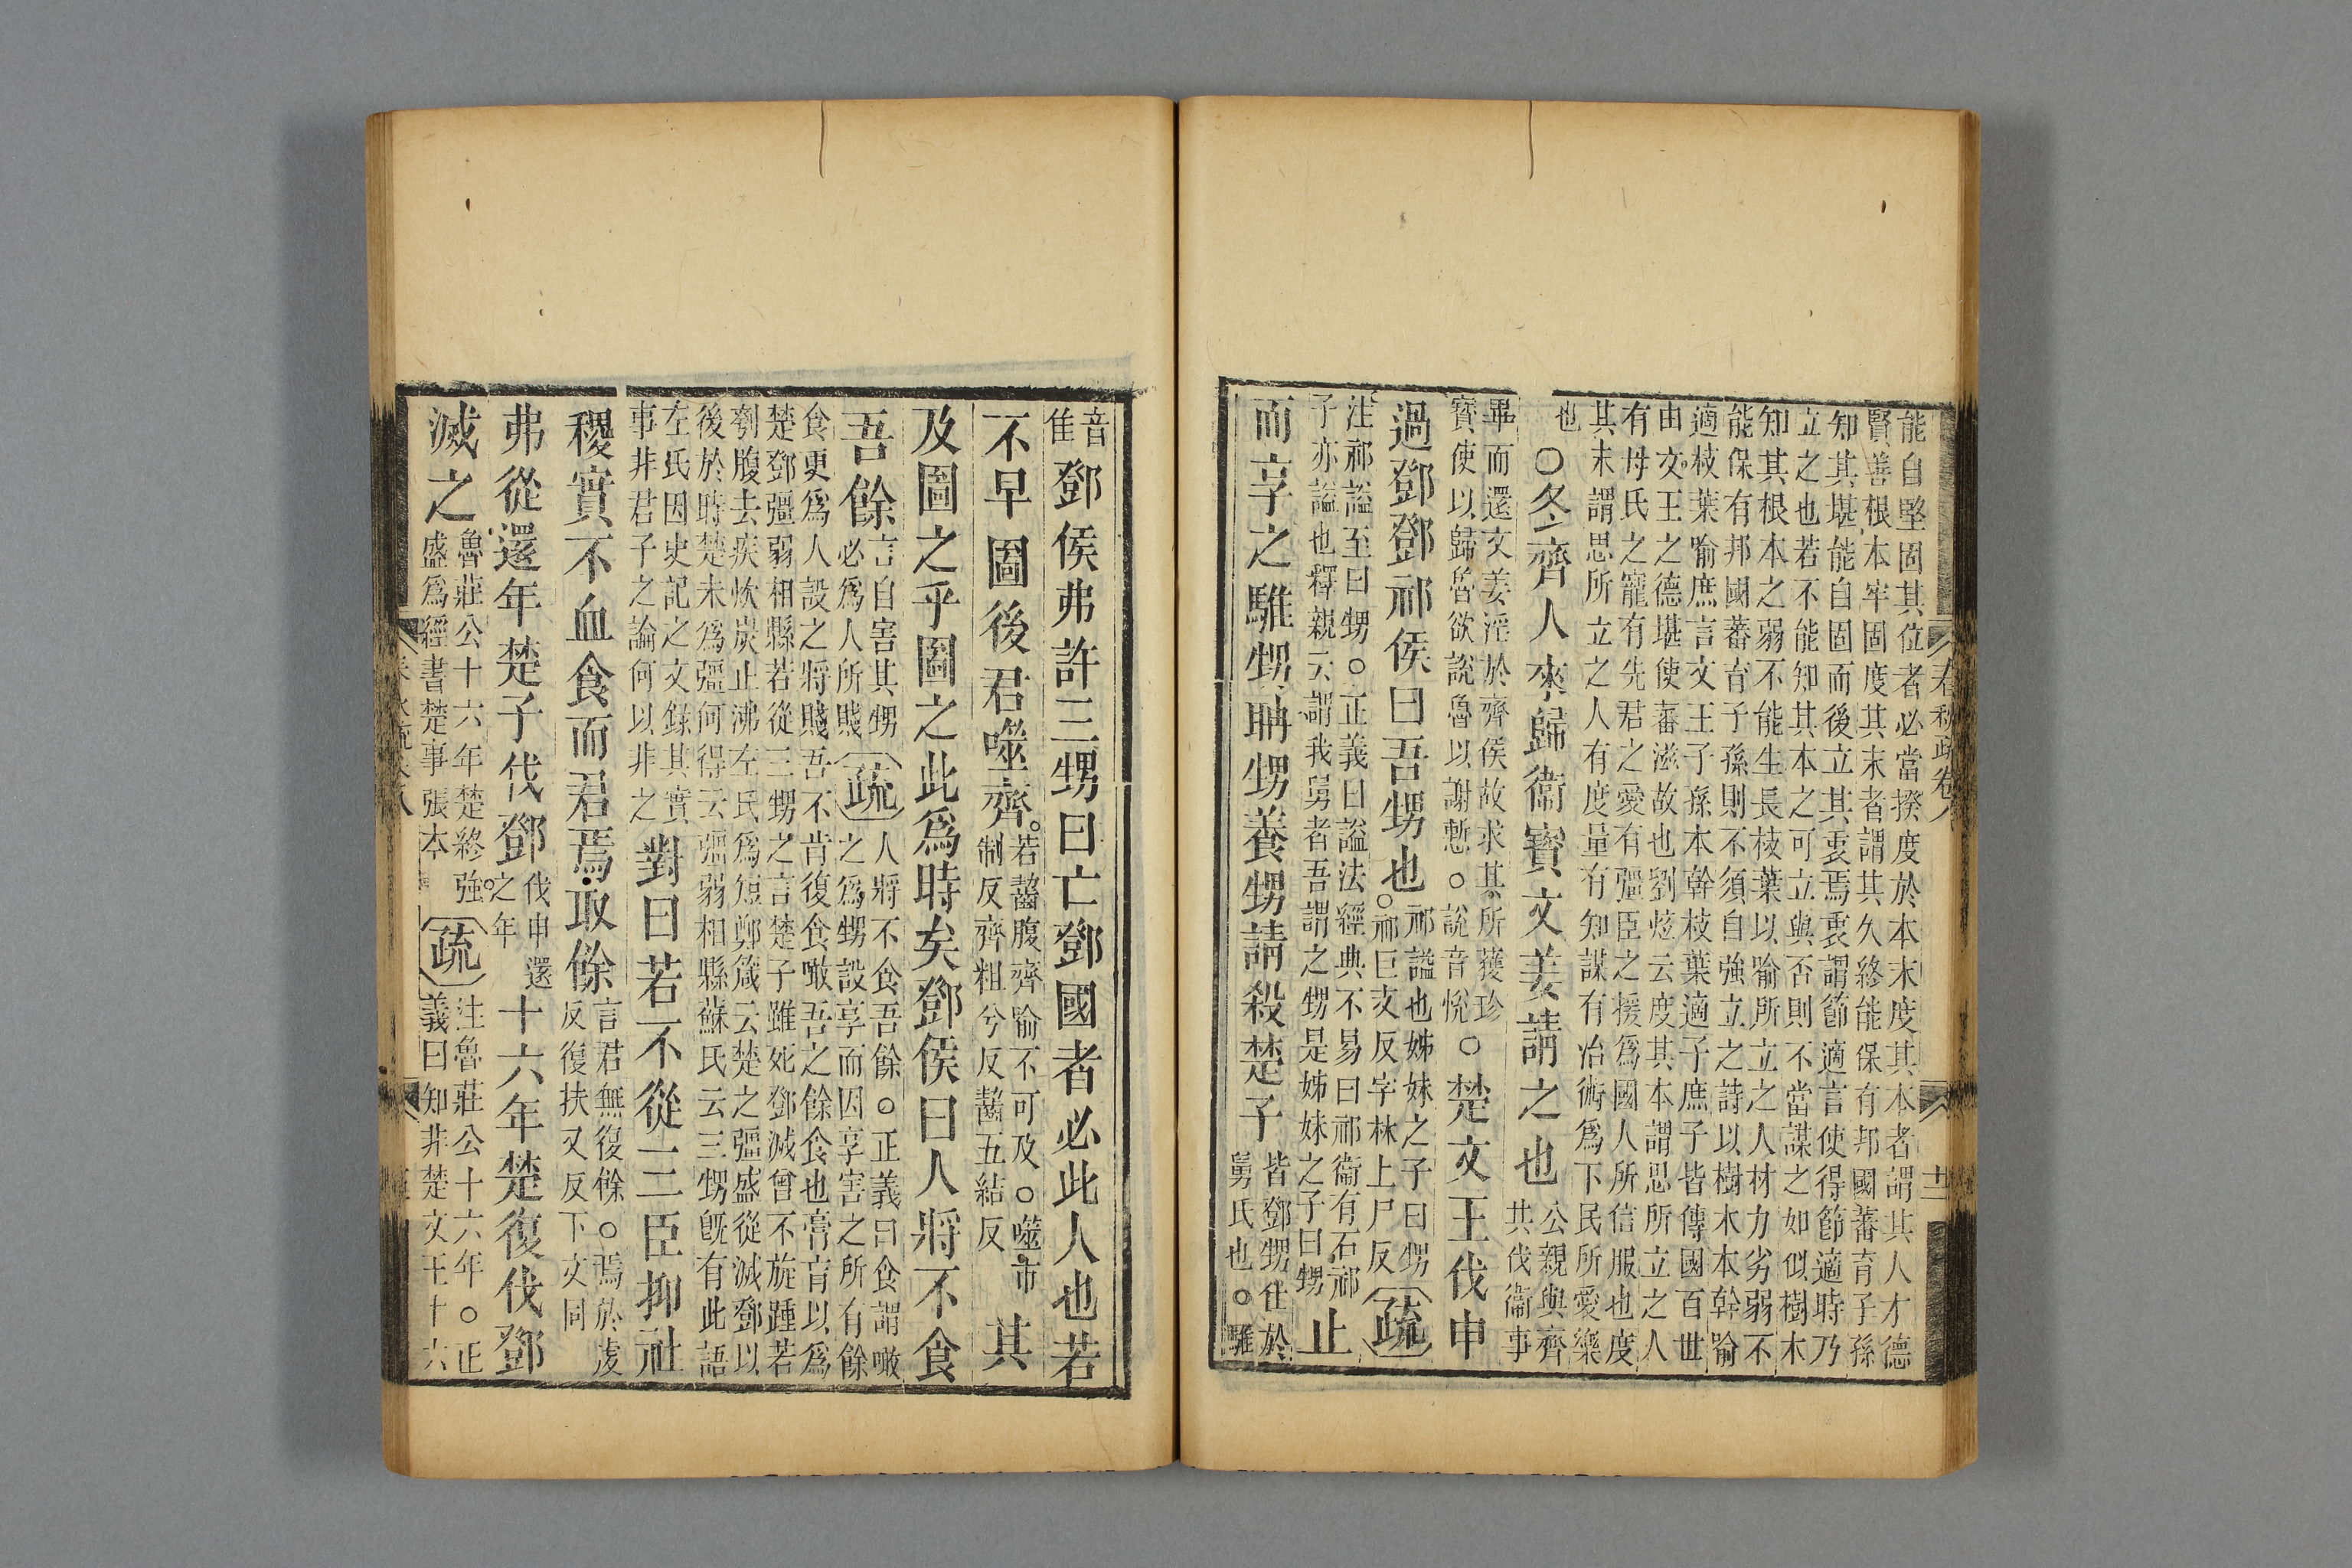 春秋疏卷八　十一
能自堅固其位者必當揆度於本末度其本者謂其人才德
賢善根本牢固度其末者謂其久終能保有邦國蕃育子孫
知其堪能自固而後立其衷焉衷謂節適言使得節適時乃
立之也若不能知其本之可立與否則不當謀之如似樹木
知其根本之弱不能生長枝葉以喻所立之人材力劣弱不
能保有邦國蕃育子孫則不須自強立之詩以樹木本幹喻
適枝葉喻庶言文王子孫本幹枝葉適子庶子皆傳國百世
由文王之德堪使蕃滋故也劉炫云度其本謂思所立之人
有母氏之寵有先君之愛有彊臣之援爲國人所信服也度
其末謂思所立之人有度量有知謀有治術爲下民所愛樂
也
○冬齊人來歸衞寶文姜請之也
公親與齊
共伐衞事
畢而還文姜淫於齊侯故求其所獲珍
寶使以歸魯欲說魯以謝慙○說音悅
○楚文王伐申
過鄧鄧祁侯曰吾甥也
祁謚也姊妹之子曰甥
○祁巨支反字林上尸反
疏
注祁謚至曰甥○正義曰謚法經典不易曰祁衞有石祁
子亦謚也釋親云謂我舅者吾謂之甥是姊妹之子曰甥
止
而享之騅甥聃甥養甥請殺楚子
皆鄧甥仕於
舅氏也○騅
音
隹
鄧侯弗許三甥曰亡鄧國者必此人也若
不早圖後君噬齊
若齧腹齊喻不可及○噬市
制反齊粗兮反齧五結反
其
及圖之乎圖之此爲時矣鄧侯曰人將不食
吾餘
言自害其甥
必爲人所賤
疏
人將不食吾餘○正義曰食謂噉
之爲甥設享而因享害之所有餘
食更爲人設之將賤吾不肯復食噉吾之餘食也膏肓以爲
楚鄧彊弱相縣若從三甥之言楚子雖死鄧滅曾不旋踵若
刳腹去疾炊炭止沸左氏爲短鄭箴云楚之彊盛從滅鄧以
後於時楚未爲彊何得云彊弱相縣蘇氏云三甥旣有此語
左氏因史記之文錄其實
事非君子之論何以非之
對曰若不從三臣抑社
稷實不血食而君焉取餘
言君無復餘○焉於虔
反復扶又反下文同
弗從還年楚子伐鄧
伐申還
之年
十六年楚復伐鄧
滅之
魯莊公十六年楚終強
盛爲經書楚事張本
疏
注魯莊公十六年○正
義曰知非楚文王十六